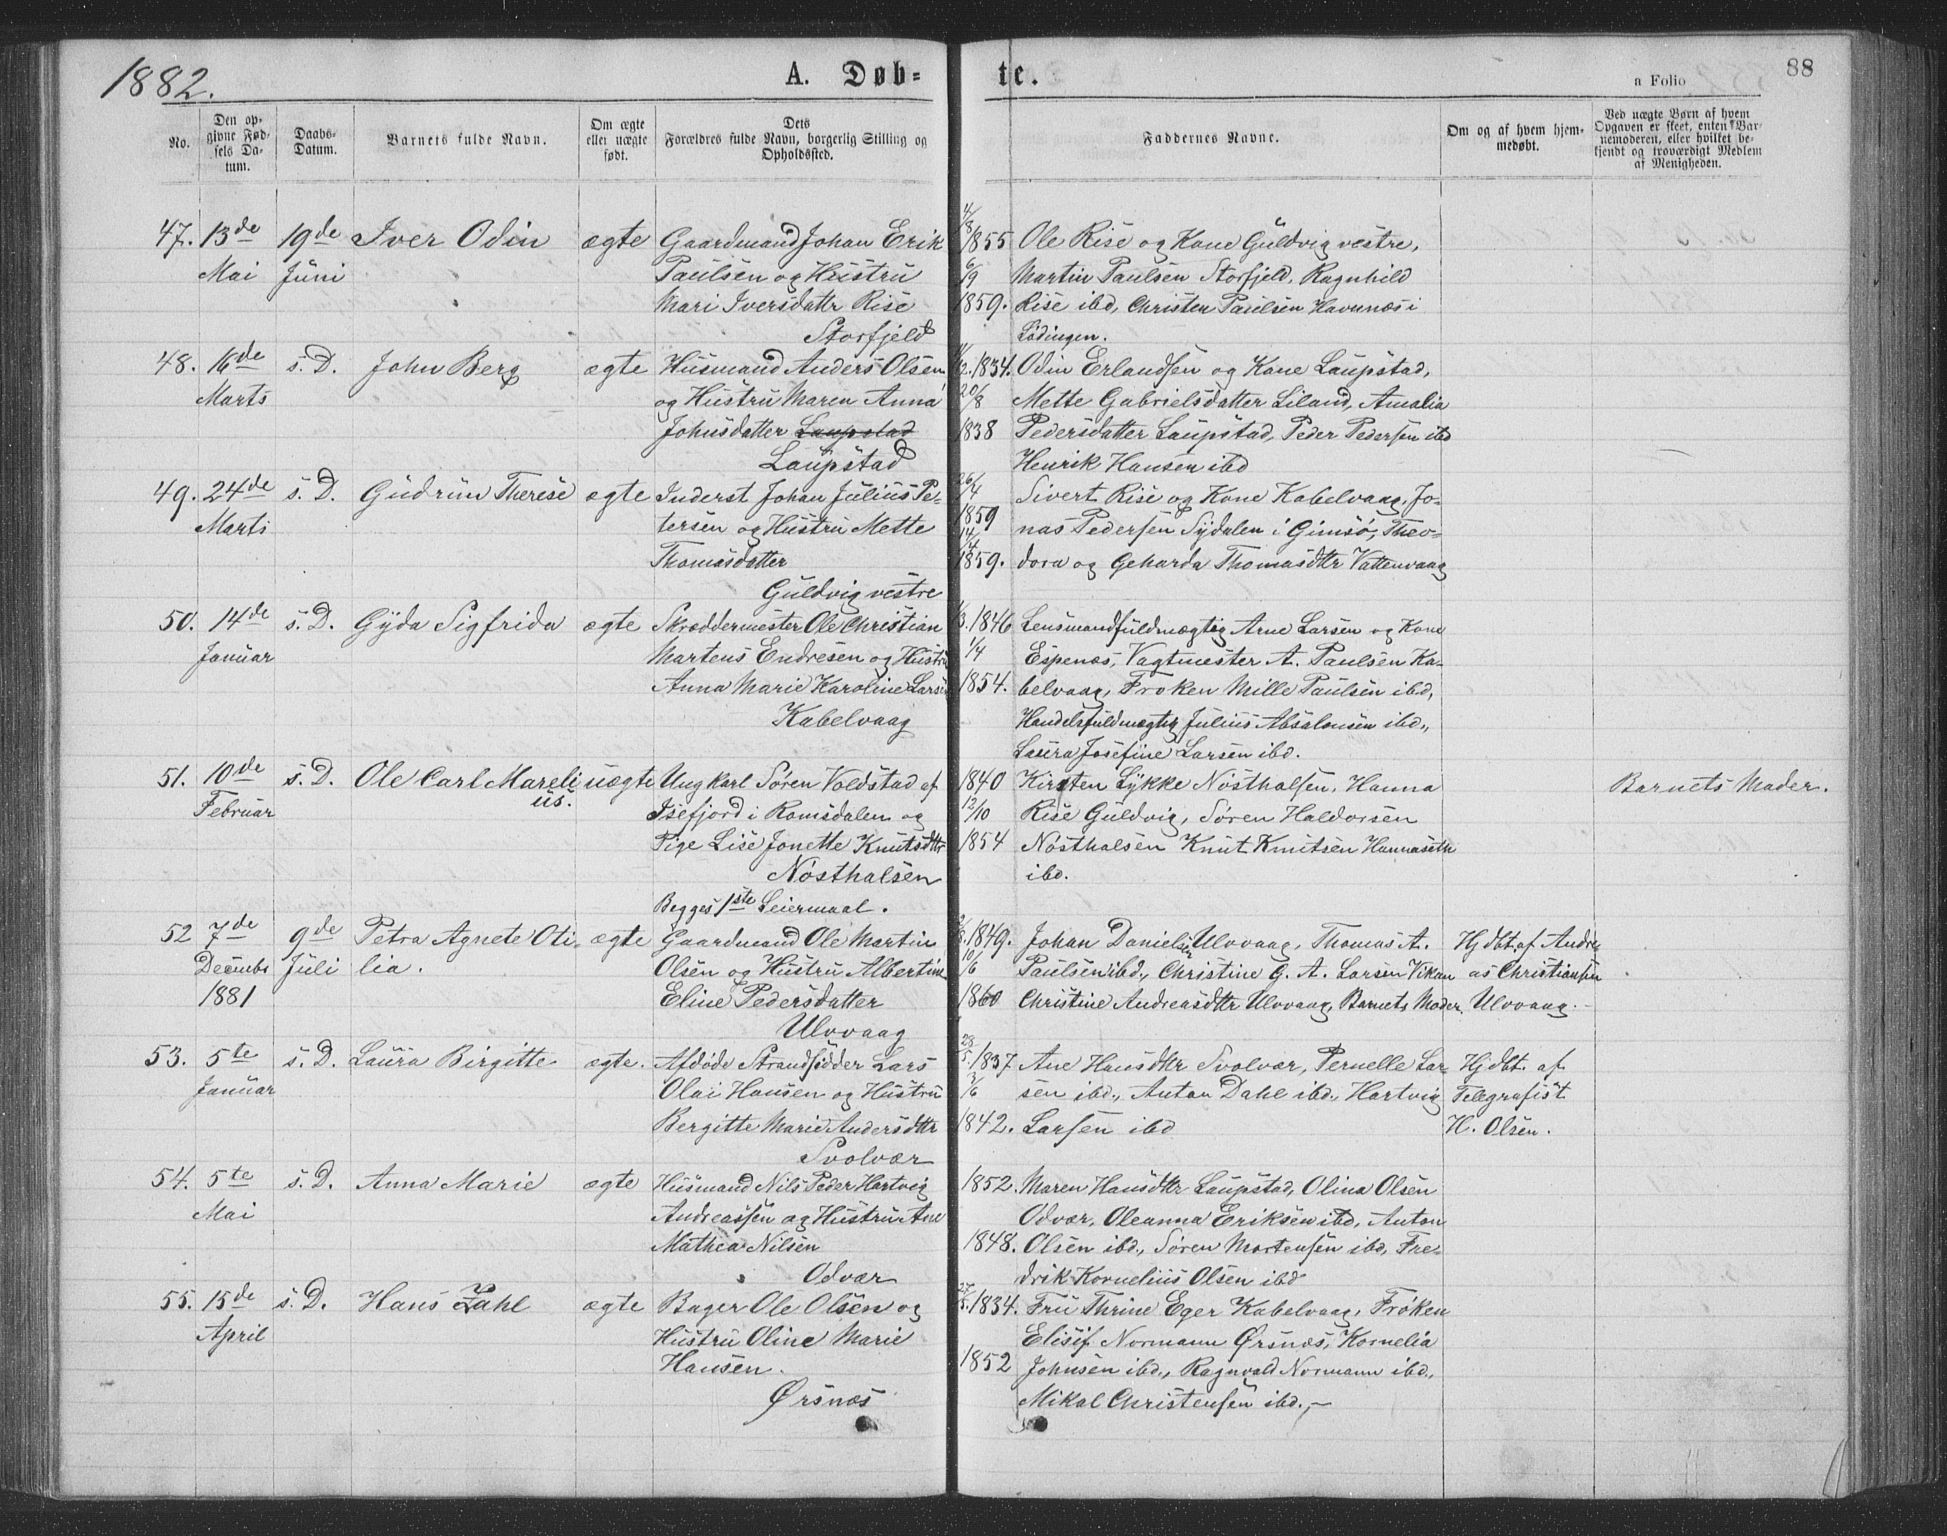 1882.
A. Døb=
te.
a Folio
88
No.
Den op-
givne Fød-
sels Da-
tum.
Daabs-
Datum.
Barnets fulde Navn.
Om ægte
eller uægte
født.
Dets
Forældres fulde Navn, borgerlig Stilling og
Opholdsted.
Faddernes Navne.
Om og af hvem hjem-
medøbt.
Ved uægte Børn af hvem
Opgaven er skeet, enten Bar-
nemoderen, eller hvilket be-
kjendt og troværdigt Medlem
af Menigheden.
47. 13de Mai 19de Juni Iver Odin ægte
Gaardmand Johan Erik
Paulsen og Hustru
Mari Iversdattr Rise
Storfjeld
4/3 1855
6/9
1859.
Ole Rise og Kone Guldvig vestre,
Martin Paulsen Storfjeld, Ragnhild
Rise ibd, Christen Paulsen Havnnæs i
Lødingen.
48. 16de Marts s. D. John Berg ægte
Husmand Anders Olsen
og Hustru Maren Anna
Johnsdatter Laupstad
Laupstad
1834.
20/8
1838
Odin Erlandsen og Kone Laupstad,
Mette Gabrielsdatter Liland, Amalia
Pedersdatter Laupstad, Peder Pedersen ibd
Henrik Hansen ibd
49. 24de Marts s. D. Gudrun Therese ægte
Inderst Johan Julius Pe-
tersen og Hustru Mette
Thomasdatter
Guldvig vestre
26/4
1859
14/4
1859.
Sivert Rise og Kone Kabelvaag, Jo-
nas Pedersen Sydalen i Gimsø, Theo-
dora og Geharda Thomasdttr Vattenvaag
50. 14de Januar s. D. Gyda Sigfrida ægte
Skræddermester Ole Christian
Martens Endresen og Hustru
Anna Marie Karoline Larsen
Kabelvaag
1846
1/4
1854.
Lensmandfuldmægtig Arne Larsen og Kone
Espenæs, Vagtmester A. Paulsen Ka-
belvaag, Frøken Mille Paulsen ibd,
Handelsfuldmægtig Julius Absalonsen ibd.,
Laura Josefine Larsen ibd.
51. 10de Februar s. D. Ole Carl Mareli
us. uægte
Ungkarl Søren Voldstad af
Isefjord i Romsdalen og
Pige Lise Jonette Knutsdttr
Nøsthalsen
Begges 1ste Leiermaal.
1840
12/10
1854
Kirsten Lykke Nøsthalsen, Hanna
Rise Guldvig, Søren Haldorsen
Nøsthalsen Knut Knutsen Hannaseth
ibd.
Barnets Moder.
52 7de Decembr 1881 9de Juli Petra Agnete Oti-
lia. ægte
Gaardmand Ole Martin
Olsen og Hustru Albertine
Eline Pedersdatter
Ulvvaag
1849.
10/6
1860
Johan Danielsen Ulvvaag, Thomas A.
Paulsen ibd, Christine G. A. Larsen Vikan
Christine Andreasdttr Ulvvaag, Barnets Moder.
Hjdbt. af Andre
as Christiansen
Ulvvaag.
53. 5te Januar s. D. Laura Birgitte ægte.
Afdøde Strandsidder Lars
Olai Hansen og Hustru
Bergitte Marie Andersdttr
Svolvær
23/5 1837
2/6
1842.
Ane Hansdttr Svolvær, Pernelle Lar-
sen ibd., Anton Dahl ibd., Hartvig
Larsen ibd
Hjdbt. af
Telegrafist
H. Olsen.
54. 5te Mai s. D. Anna Marie ægte
Husmand Nils Peder Hartvig
Andreassen og Hustru Ane
Mathea Nilsen
Odvær
1852.
1848.
Maren Hansdttr Laupstad, Olina Olsen
Odvær, Oleanna Eriksen ibd, Anton
Olsen ibd., Søren Mortensen ibd, Fre-
drik Kornelius Olsen ibd
55. 15de April s. D. Hans Zahl ægte
Bager Ole Olsen og
Hustru Oline Marie
Hansen.
Ørsnæs
27/5 1834.
1852
Fru Thrine Eger Kabelvaag, Frøken
Elisif Normann Ørsnæs, Kornelia
Johnsen ibd., Ragnvald Normann ibd.,
Mikal Christensen ibd.,